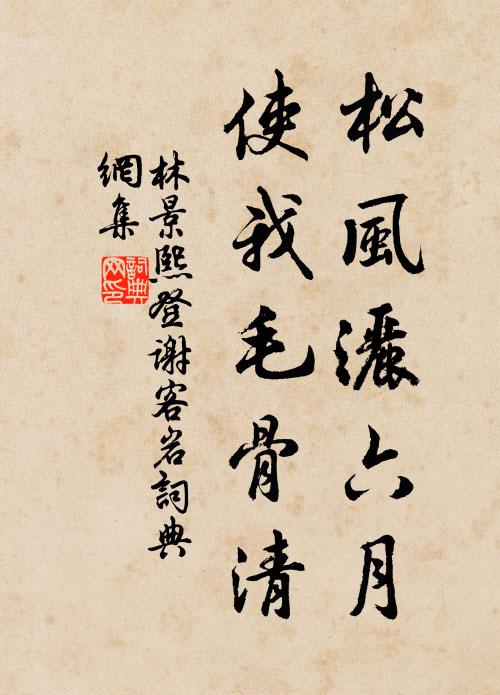 松風灑六月
使我毛骨清
林景熙登谢客岩詞典
網集
詞典
网印